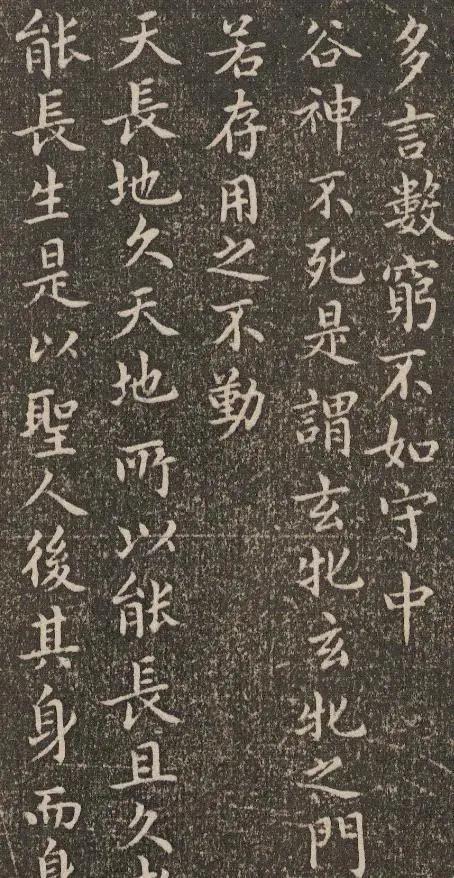 多言數窮不如守中
谷神不死是謂玄牝玄牝之門
若存用之不勤
天長地久天地所以能長且久者
能長生是以聖人後其身而身